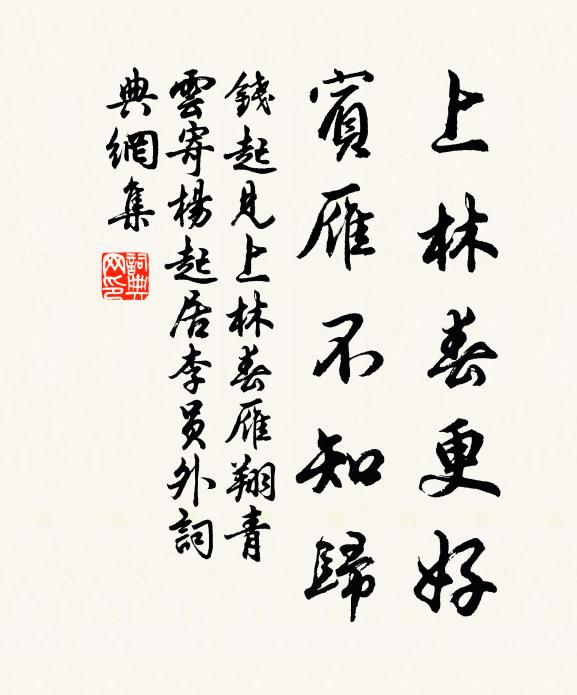 上林春更好
賓雁不知歸
錢起見上林春雁翔青
雲寄楊起居李員外詞
典網集
詞典网印